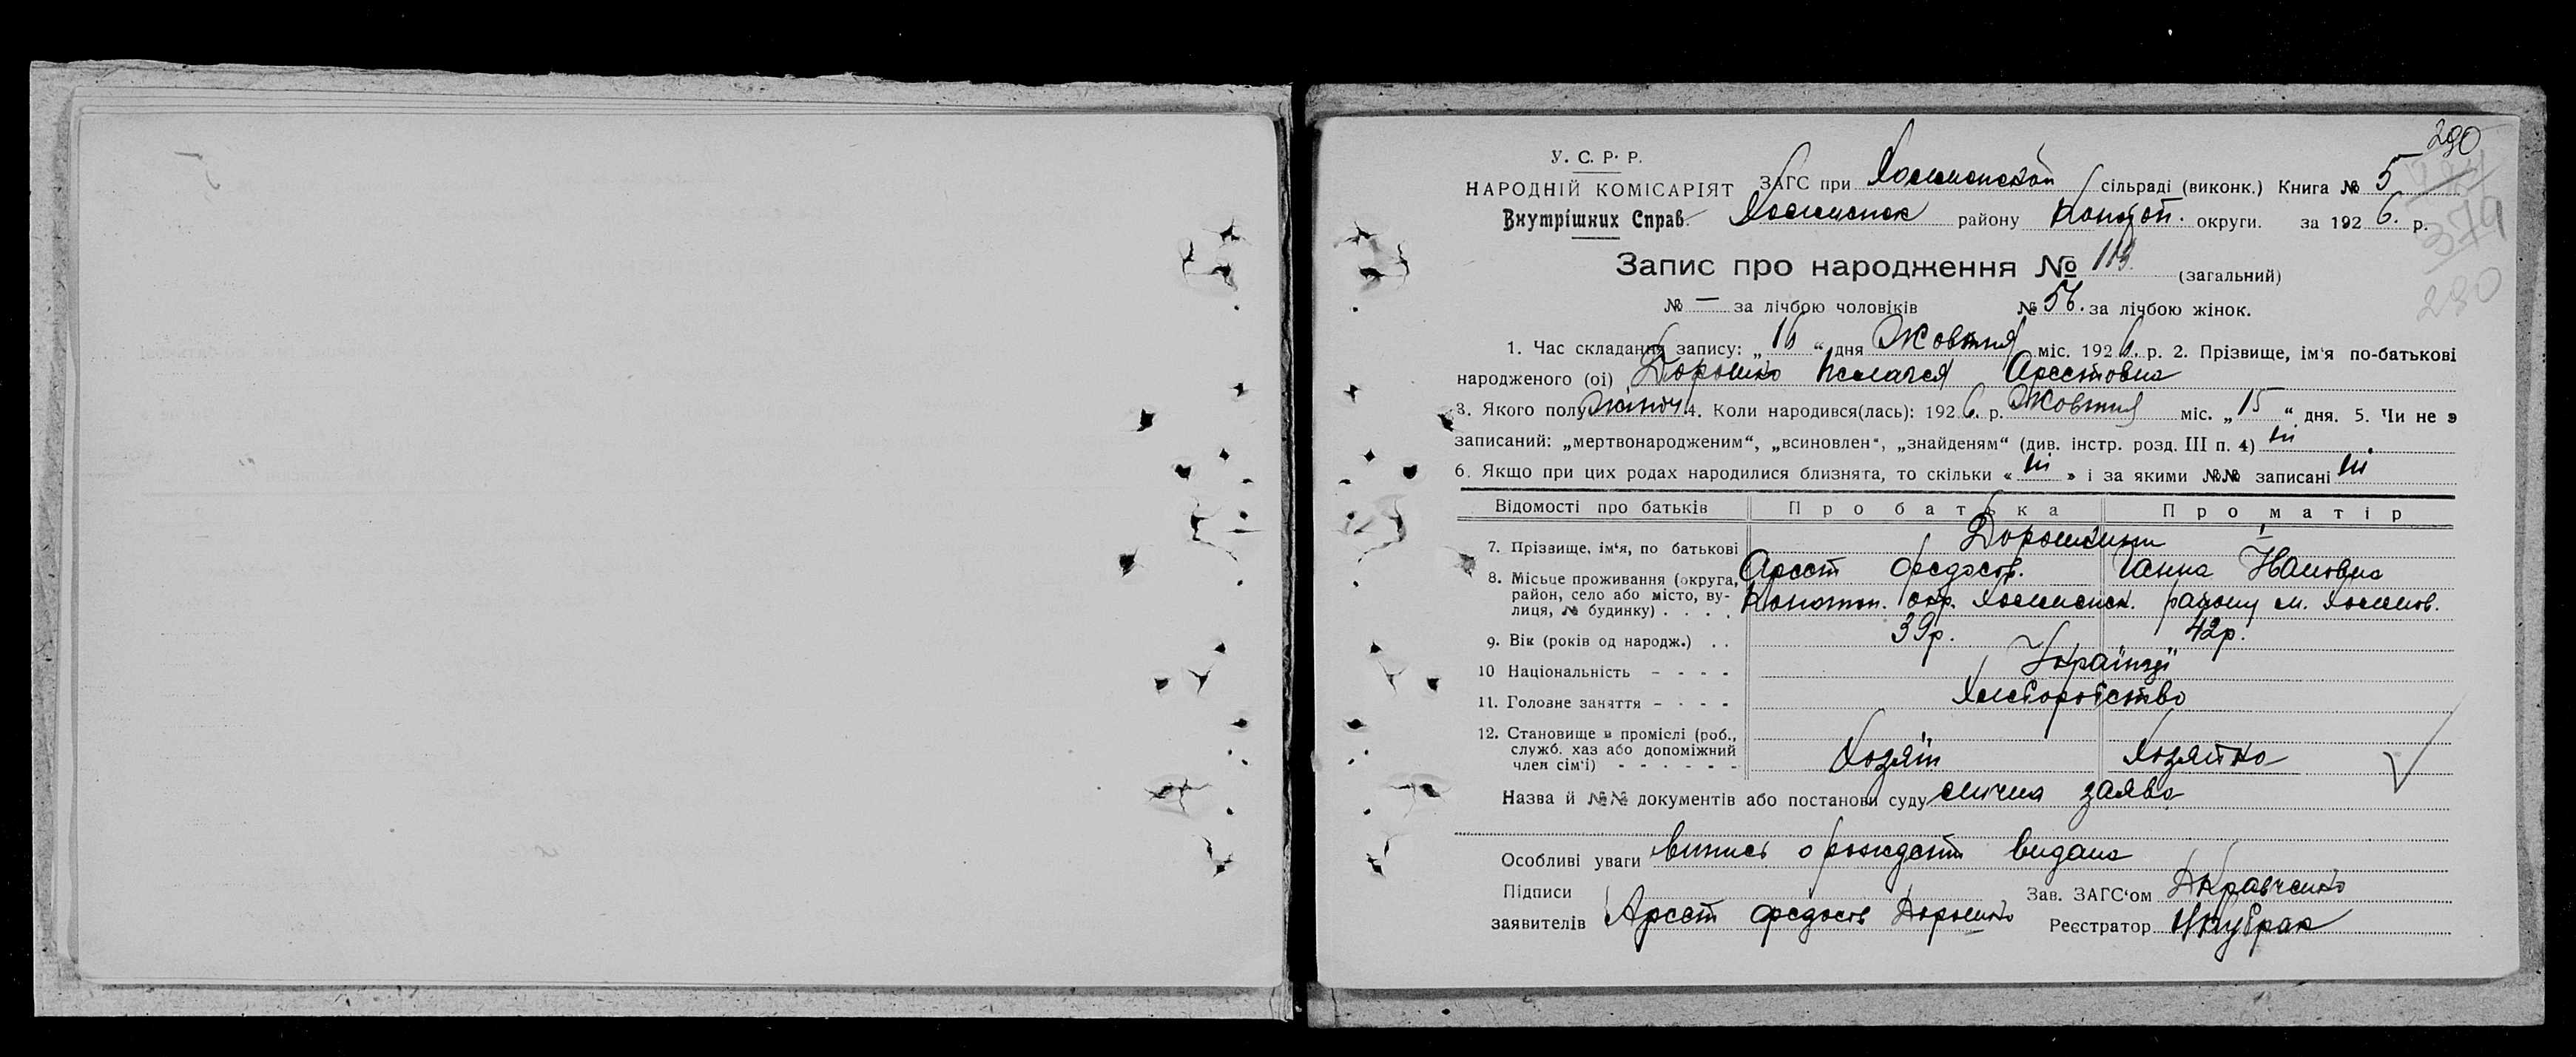 290
У. С. Р. Р.
НАРОДНІЙ КОМІСАРІЯТ
Внутрішних Справ.
ЗАГС при Холменской сільраді (виконк.) Книга № 5
Холменск району Конотоп. округи. за 1926. р.
379
290
Запис про народження № 113. (загальний)
№ — за лічбою чоловіків № 56. за лічбою жінок.
1. Час складання запису: „16“ дня Жовтня міс. 1926. р. 2. Прізвище, ім'я по-батькові
народженого (ої) Дорошко Пелагея Арестовна
3. Якого полу жіноч. 4. Коли народився(лась): 1926. р. Жовтня міс. „15“ дня. 5. Чи не є
записаний: „мертвонародженим“, „всиновлен“, „знайденям“ (див. інстр. розд. III п. 4) ні
6. Якщо при цих родах народилися близнята, то скільки «ні» і за якими №№ записані ні
Відомості про батьків Про батька Про матір
7. Прізвище, ім'я, по батькові Дорошкини
Арест Федосов. Ганна Івановна
8. Місьце проживання (округа, район, село або місто, вулиця, № будинку) . . . . Конотоп. окр. Холменск. району м. Холмов.
9. Вік (років од народж.) . . 39р. 42р.
10 Національність - - - - Українці
11. Головне заняття - - - - Хліборобство
12. Становище в проміслі (роб., служб. хаз або допоміжний член сім'ї) - - - - - - Хозяїн Хозяйка
Назва й №№ документів або постанови суду слична заява
Особливі уваги випись о рождении видана
Підписи
заявителів Арест Федосов Дорошко
Зав. ЗАГС'ом Кравченко
Реєстратор